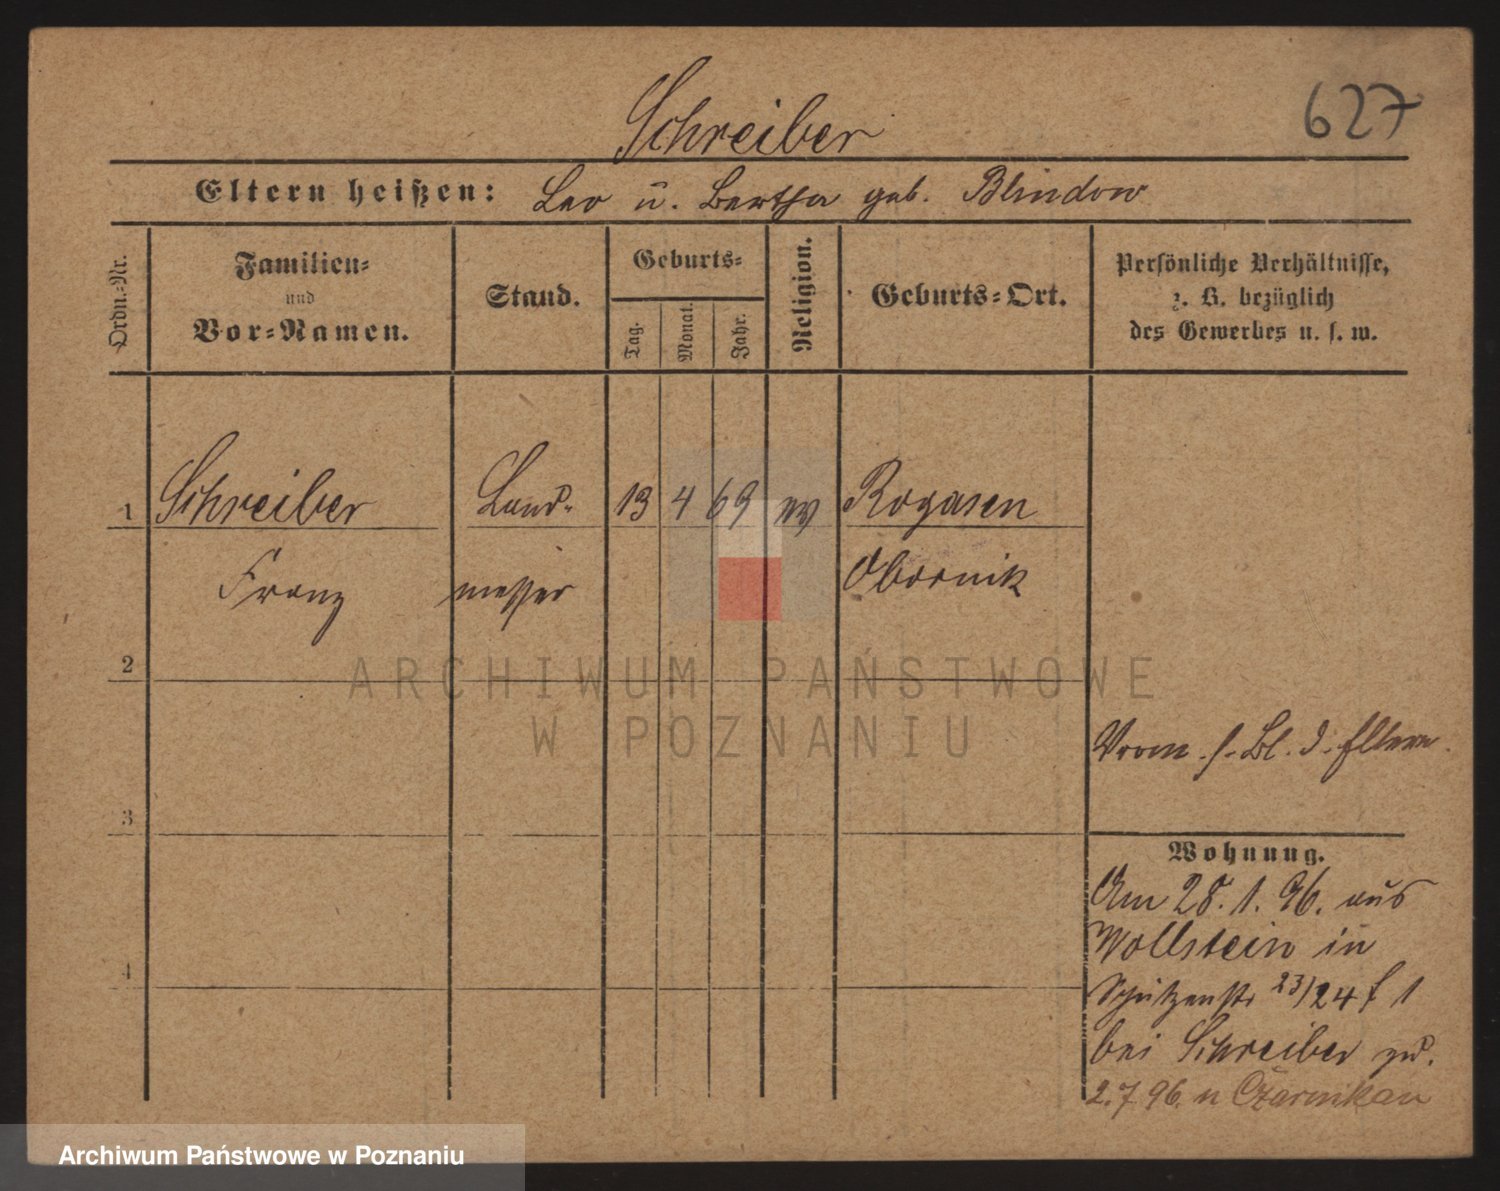 627
Schreiber
Eltern heißen: Leo u. Bertha geb. Blindow
Ordn.-Nr.
Familien-
und
Vor-Namen.
Stand.
Geburts-
Tag.
Monat.
Jahr.
Religion.
Geburts-Ort.
Persönliche Verhältnisse,
z. B. bezüglich
des Gewerbes u. s. w.
1 Schreiber Land- 13 4 69 ev Rogasen
Franz messer Obornik
2
ARCHIWUM PAŃSTWOWE
W POZNANIU
s. Bl. d. Eltern
3
Wohnung.
Am 28.1.96. aus
Wollstein in
Schützenstr 23/24 f 1
4
bei Schreiber
2.7.96. n Czarnikau
Archiwum Państwowe w Poznaniu